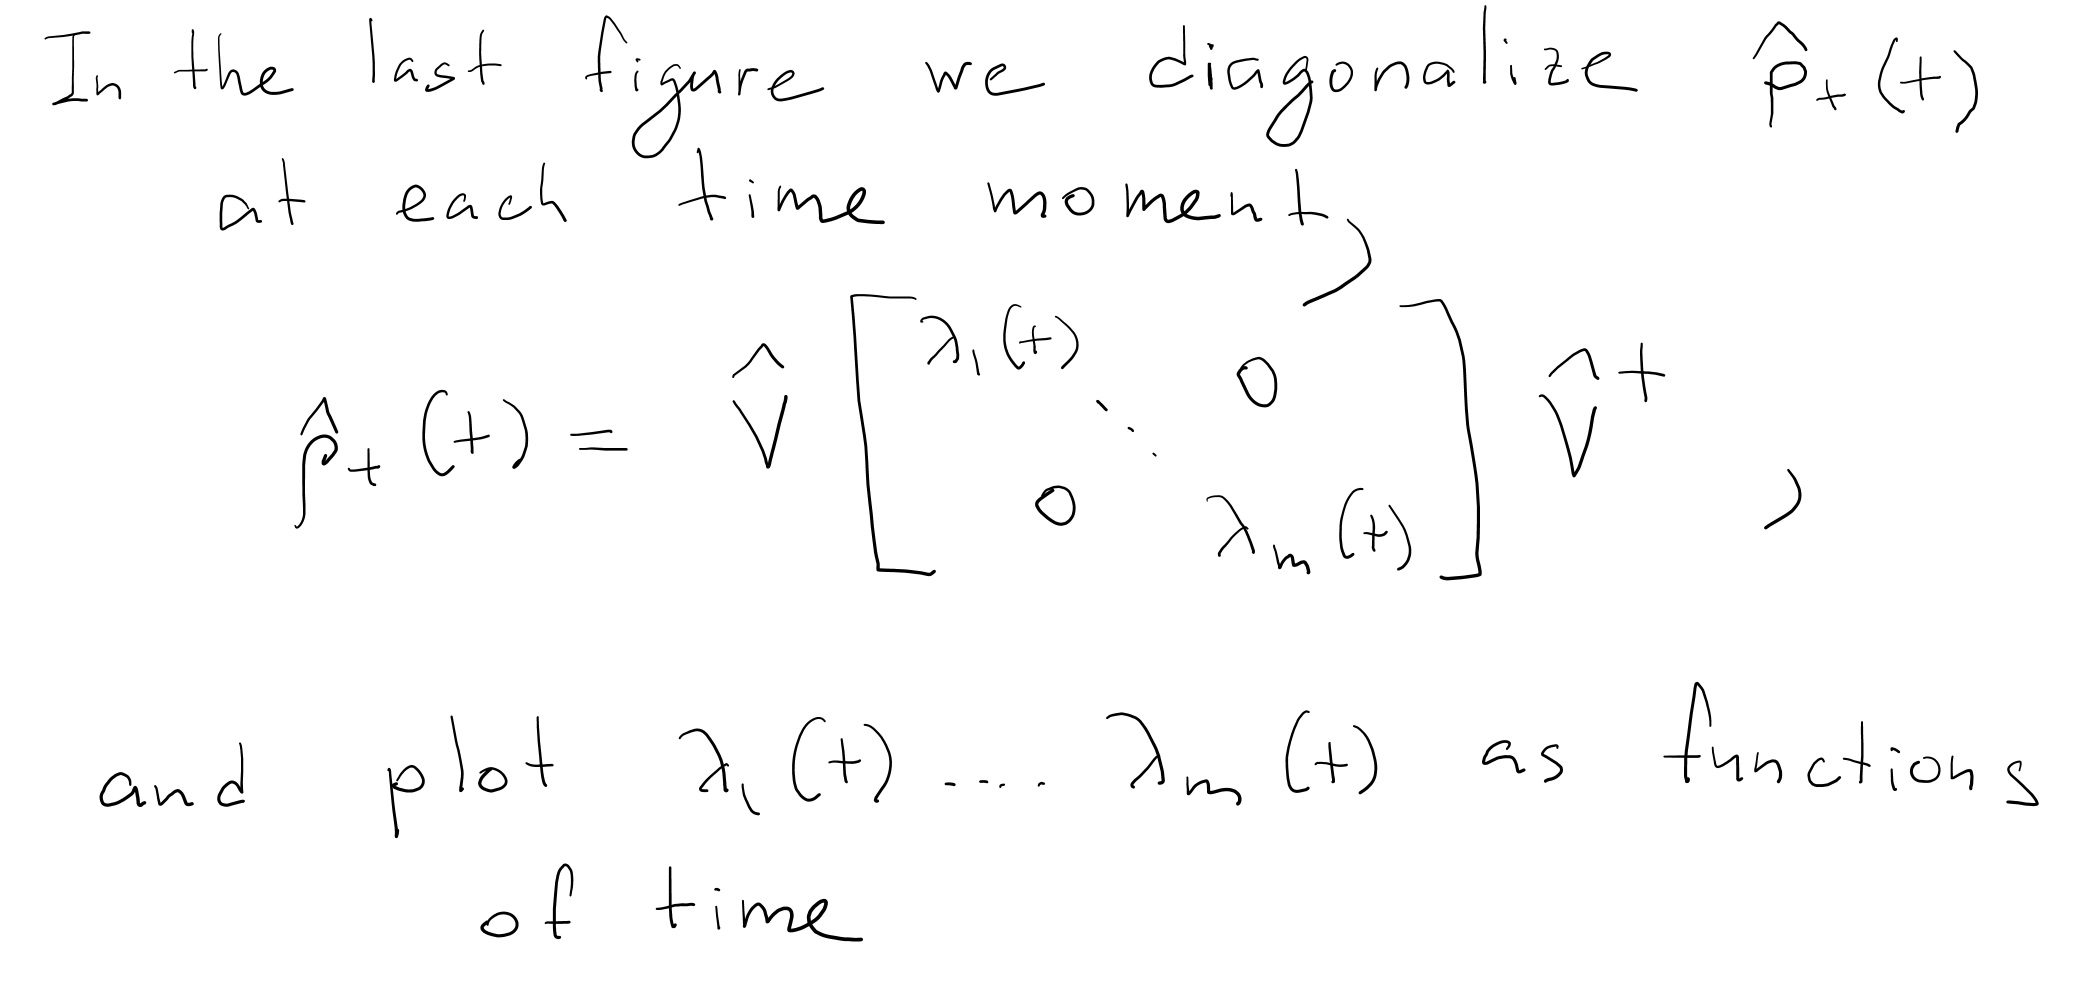 In the last figure we diagonalize ρ̂₊(t)
at each time moment,
ρ̂₊(t) = V̂ [λ₁(t) ⋱ 0 0 λₘ(t)] V̂†,
and plot λ₁(t) .... λₘ(t) as functions
of time